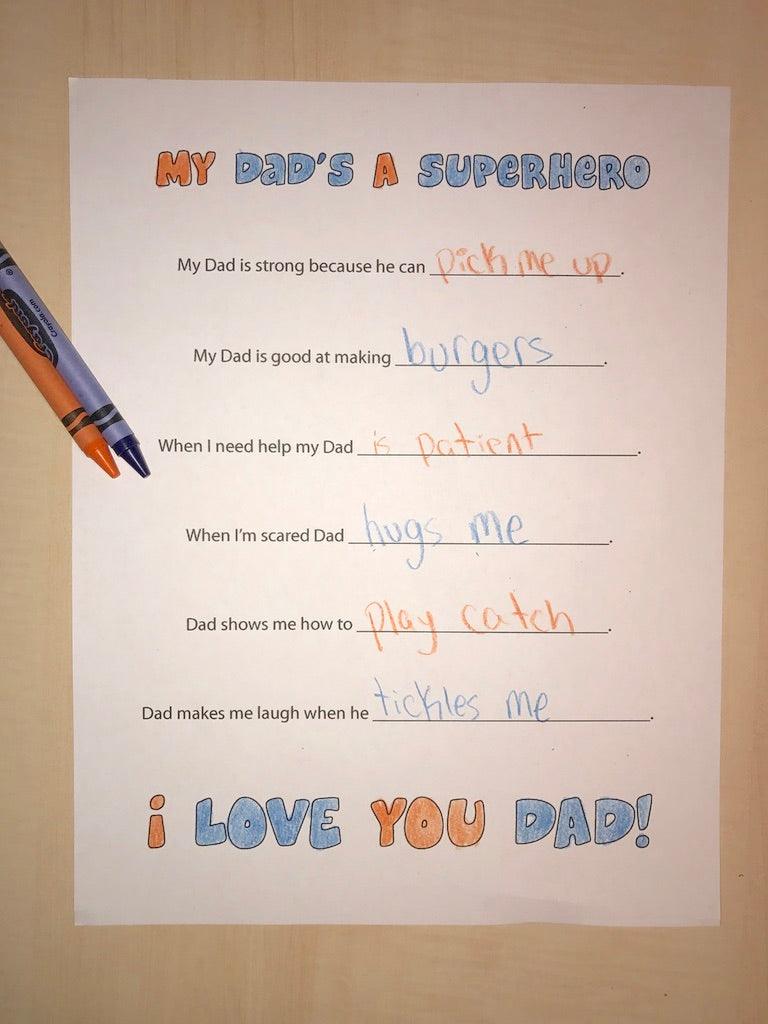 MY DaD'S A SUPERHERO
My Dad is strong because he can pick me up.
My Dad is good at making burgers.
When I need help my Dad is patient.
When I'm scared Dad hugs me.
Dad shows me how to play catch.
Dad makes me laugh when he tickles me.
i LOVE YOU DAD!
Crayola.com
Crayola